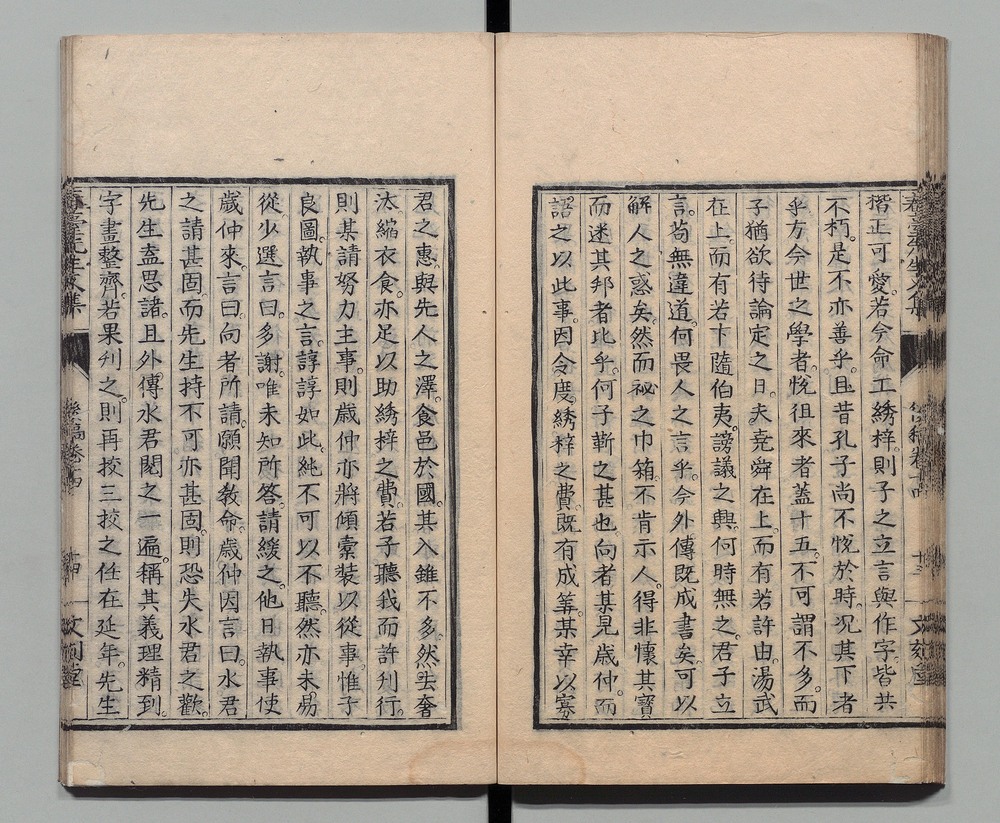 楷正可愛。若今命工綉梓。則子之立言與作字。皆共
不朽。是不亦善乎。且昔孔子尚不悅於時。况其下者
乎。方今世之學者。悅徂來者蓋十五。不可謂不多。而
子猶欲待論定之日。夫堯舜在上。而有若許由。湯武
在上。而有若卞隨伯夷。謗議之興。何時無之。君子立
言。苟無違道。何畏人之言乎。今外傳既成書矣。可以
解人之惑矣。然而祕之巾箱。不肯示人。得非懷其寶
而迷其邦者比乎。何子靳之甚也。向者某見歲仲。而
語之以此事。因令度綉梓之費。既有成筭。某幸以寡
君之惠。與先人之澤。食邑於國。其入雖不多。然去奢
汰。縮衣食。亦足以助綉梓之費。若子聽我而許刋行。
則某請努力主事。則歲仲亦將傾橐裝以從事。惟子
良圖。執事之言。諄諄如此。純不可以不聽。然亦未易
從。少選言曰。多謝。唯未知所答。請緩之。他日執事使
歲仲來。言曰。向者所請。願聞敎命。歲仲因言曰。水君
之請甚固。而先生持不可亦甚固。則恐失水君之歡。
先生盍思諸。且外傳水君閱之一遍。稱其義理精到。
字畫整齊。若果刋之。則再挍三挍之任在延年。先生
先生文集
卷十四
十四